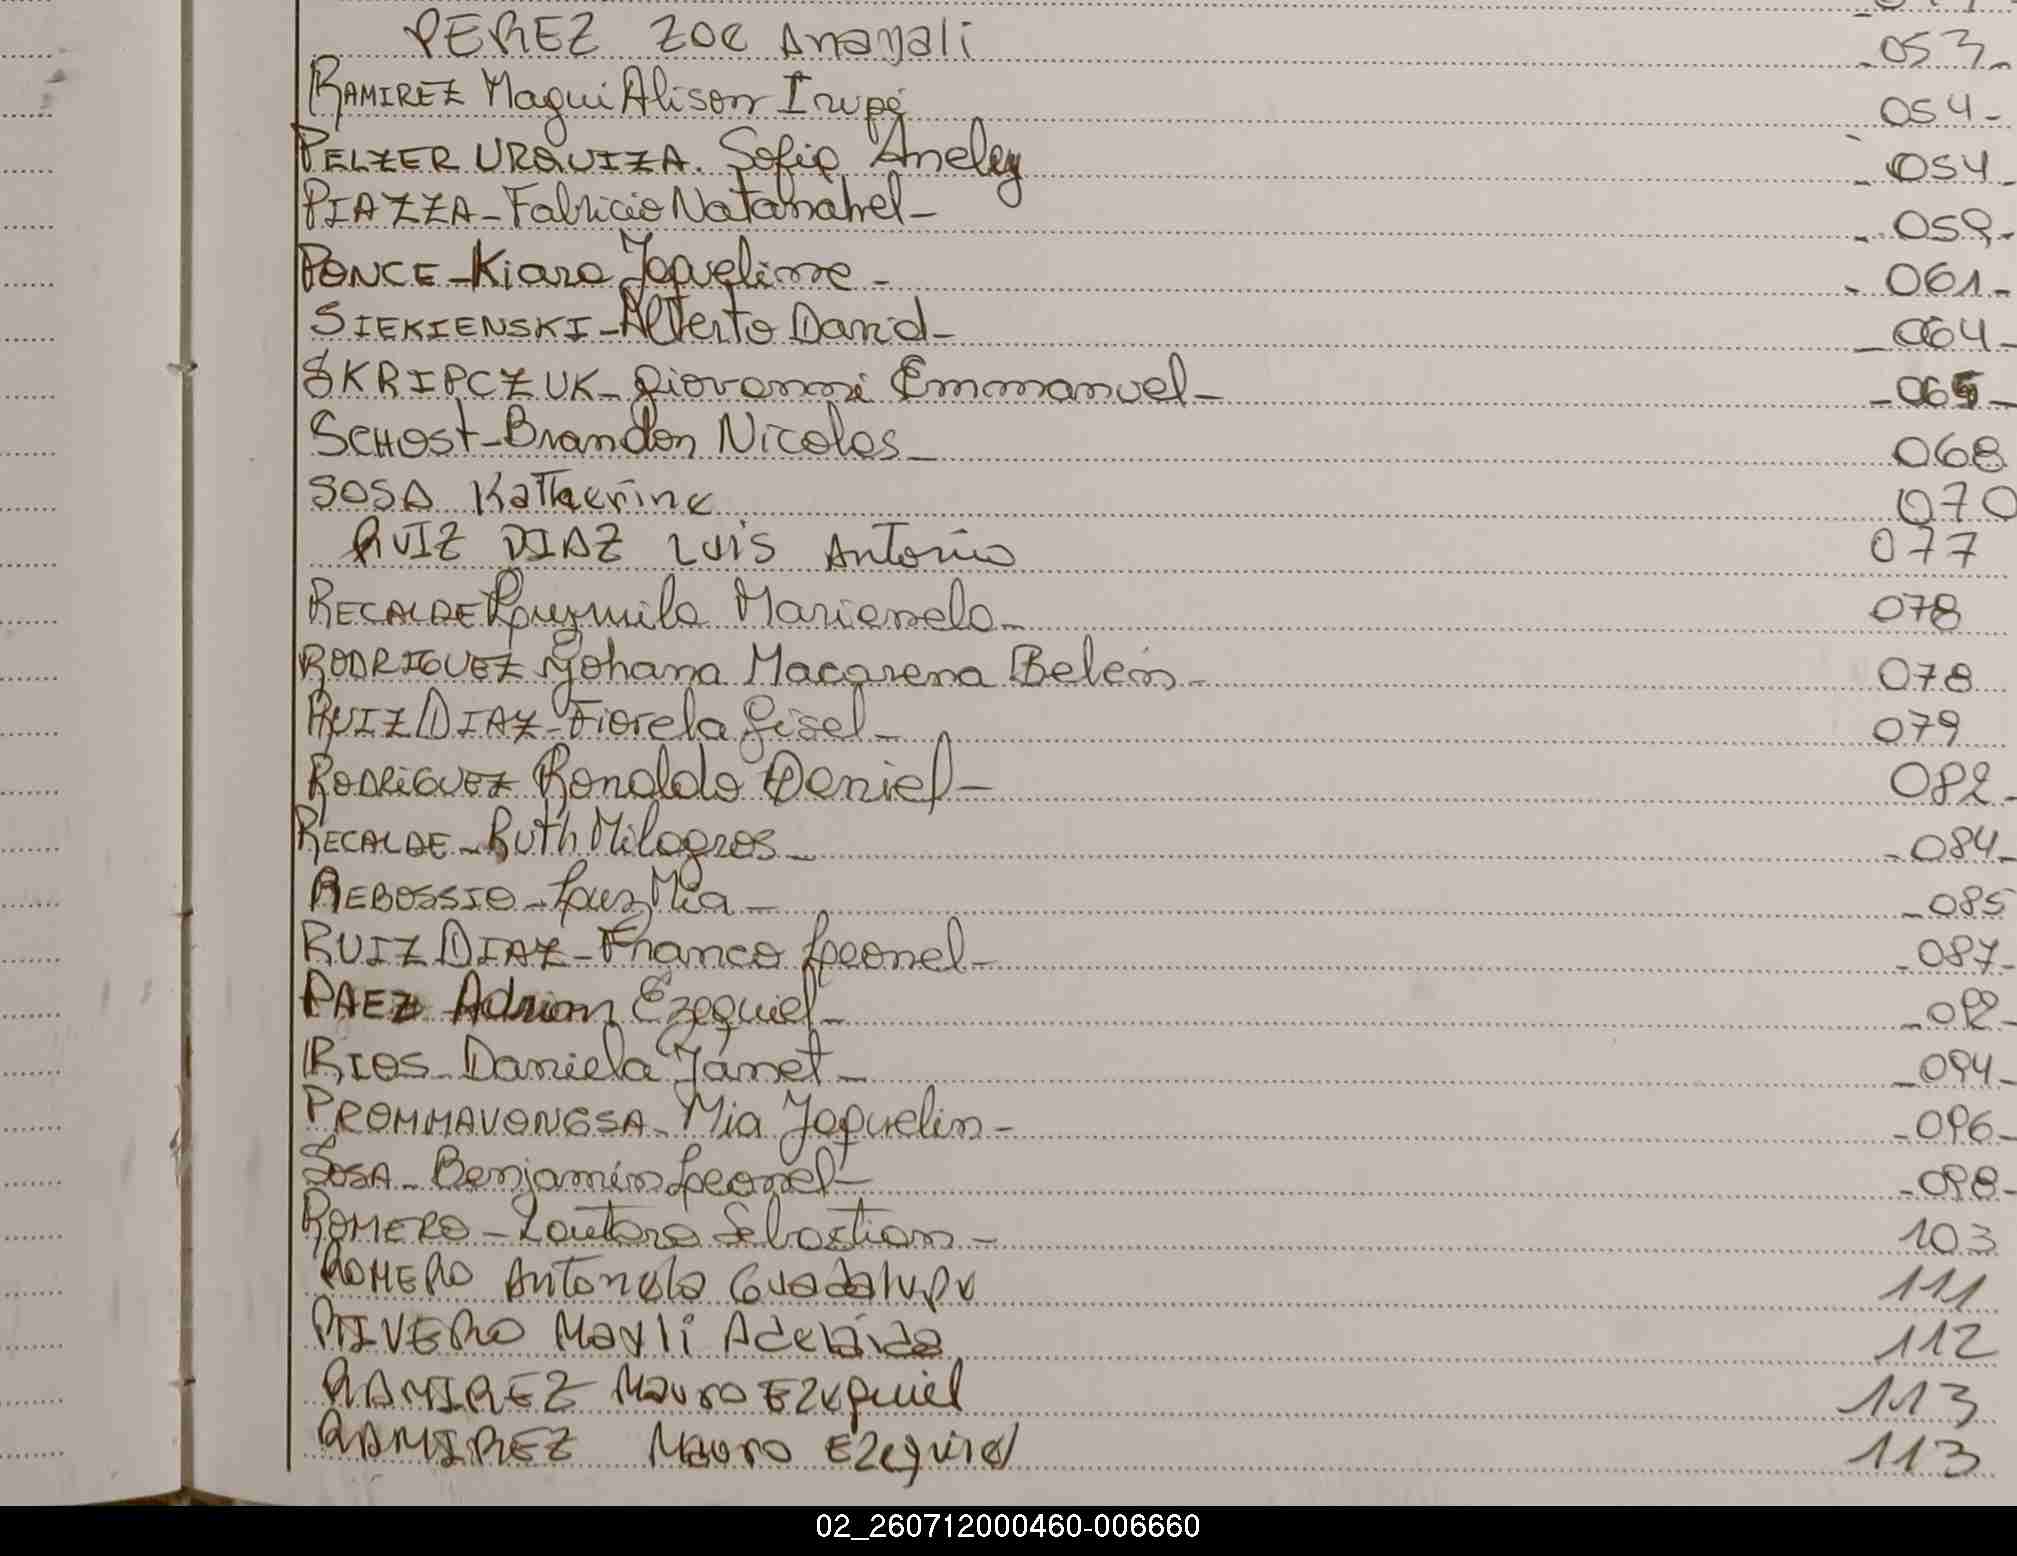 PEREZ Zoe Anayali _053_
RAMIREZ Magui Alison Irupé 054_
PELZER URQUIZA. Sofia Aneley _054_
PIAZZA_Fabricio Natanahel_ _059_
PONCE_Kiara Jaqueline_ _061_
SIEKIENSKI_Alberto David_ _064_
SKRIPCZUK_Giovanni Emmanuel_ _065_
SCHOST_Brandon Nicolas_ 068
SOSA Katherine 070
RUIZ DIAZ Luis Antonio 077
RECALDE Luzmila Marianela_ 078
RODRIGUEZ Yohana Macarena Belén_ 078
RUIZ DIAZ_Fiorela Gisel_ 079
RODRIGUEZ Ronaldo Daniel_ 082_
RECALDE_Ruth Milagros_ _084_
REBOSSIO_Luz Mia_ _085
RUIZ DIAZ_Franco Leonel_ _087_
PAEZ Adrian Ezequiel_ _092_
RIOS_Daniela Janet_ _094_
PROMMAVONGSA_Mia Jaquelin_ _096_
SOSA_Benjamín Leonel_ _098_
ROMERO_Lautaro Sebastian_ 103
ROMERO Antonela Guadalupe 111
RIVERO Mayli Adelaida 112
RAMIREZ Mauro Ezequiel 113
RAMIREZ Mauro Ezequiel 113
02_260712000460-006660